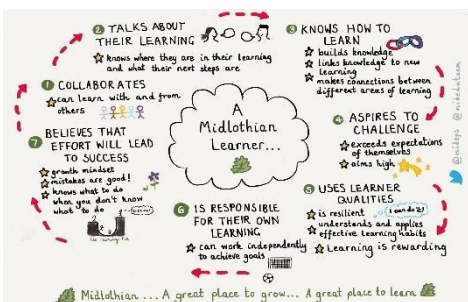 A
Midlothian
Learner...
1 COLLABORATES
can learn with and from
others
2 TALKS ABOUT
THEIR LEARNING
knows where they are in their learning
and what their next steps are
3 KNOWS HOW TO
LEARN
builds knowledge
links knowledge to new
learning
makes connections between
different areas of learning
4 ASPIRES TO
CHALLENGE
exceeds expectations
of themselves
aims high
5 USES LEARNER
QUALITIES
is resilient
I can do it!
understands and applies
effective learning habits
Learning is rewarding
6 IS RESPONSIBLE
FOR THEIR OWN
LEARNING
can work independently
to achieve goals
7 BELIEVES THAT
EFFORT WILL LEAD
TO SUCCESS
growth mindset
mistakes are good!
knows what to do
when you don't know
what to do
The Learning Pit
@mideps @mideduteam
Midlothian... A great place to grow... A great place to learn